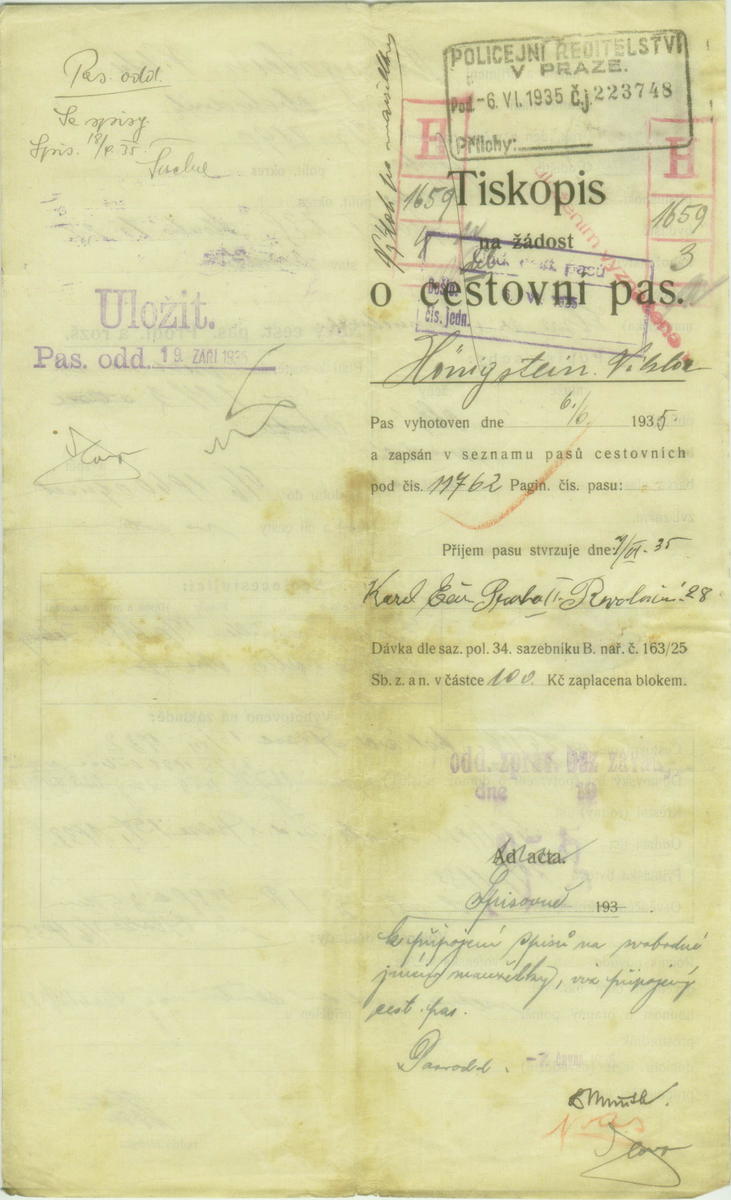 Pas. odd.
Se spisy
Spis. 18/6. 35.
Uložit.
Pas. odd. 19. ZÁŘÍ 1935
POLICEJNÍ ŘEDITELSTVÍ
V PRAZE.
Pod. -6. VI. 1935 Č.j. 223748
Přílohy:
H
1659
4
H
1659
3
Tiskopis
na žádost
o cestovní pas.
čís. jedn.
Hönigstein Viktor
Pas vyhotoven dne 6/6 1935
a zapsán v seznamu pasů cestovních
pod čís. 11762 Pagin. čís. pasu:
Příjem pasu stvrzuje dne: 7/VI. 35
Karel Praha II. Revoluční 28
Dávka dle saz. pol. 34. sazebníku B. nař. č. 163/25
Sb. z. a n. v částce 100. Kč zaplacena blokem.
odd. zpráv. bez závad.
dne 19
Ad acta.
Spisovně 193
k připojení spisů na svobodné
jméno manželky, viz připojený
cest. pas.
Pas. odd. -7. června